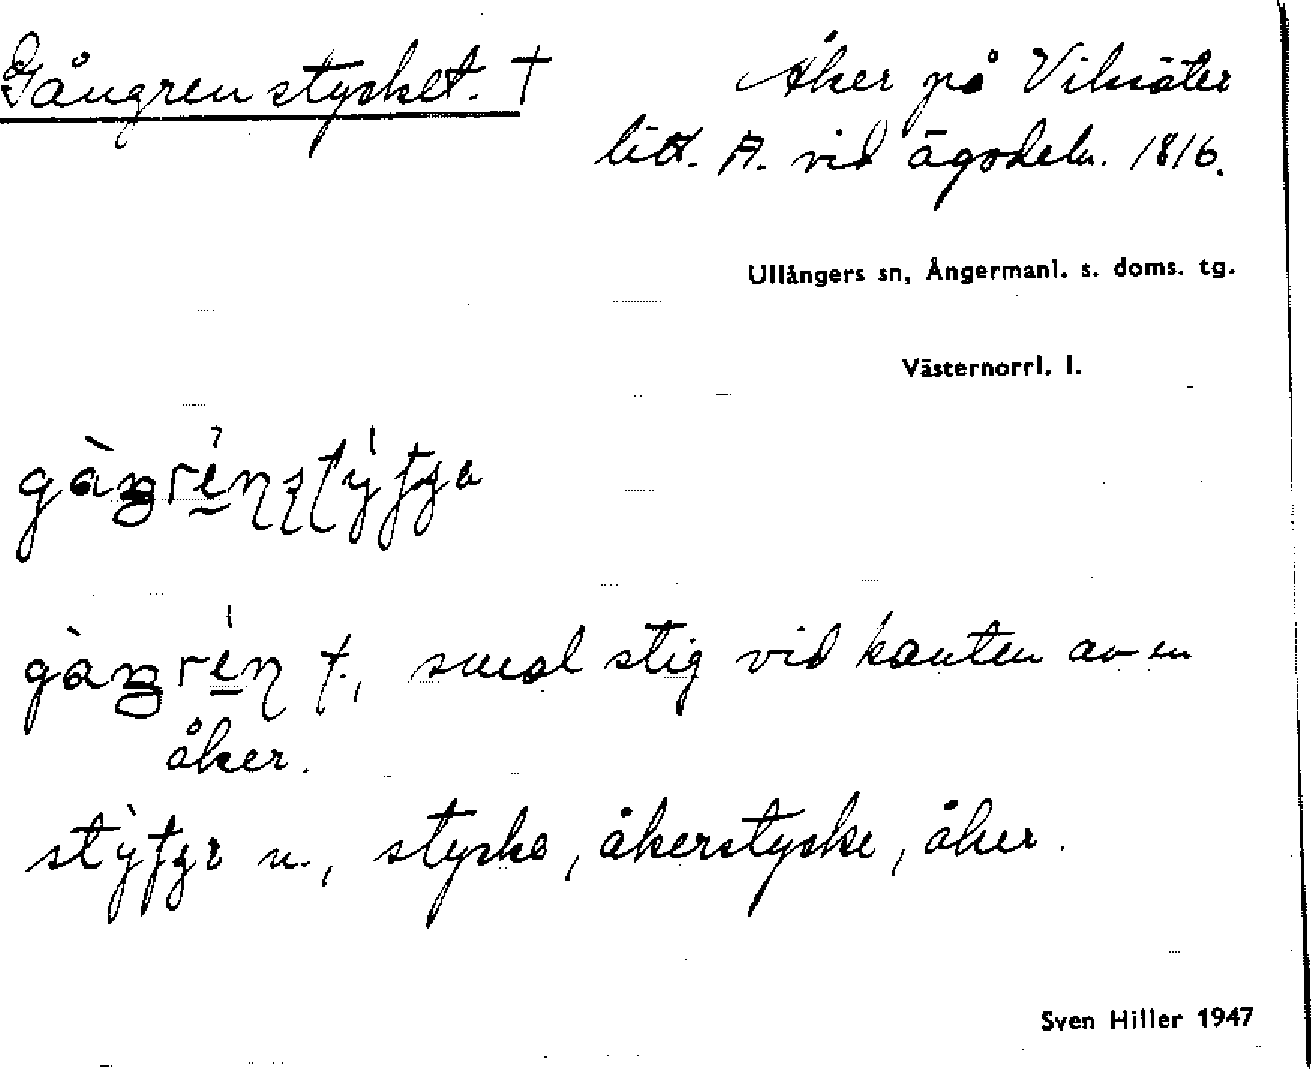 Gångrenstycket. †
Åker på Vilsäter
litt. A. vid ägodeln. 1816.
Ullångers sn, Ångermanl. s. doms. tg.
Västernorrl. l.
f., smal stig vid kanten av en
åker.
n., stycke, åkerstycke, åker.
Sven Hiller 1947